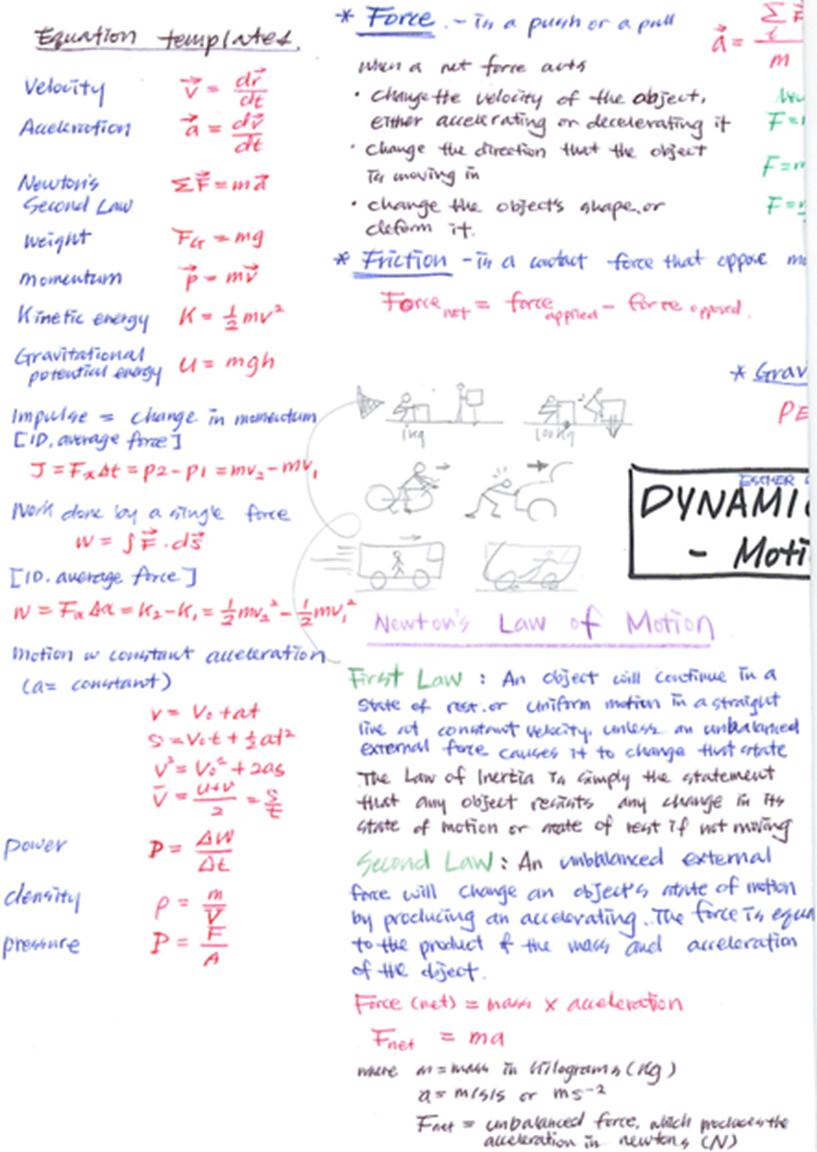 Equation templates.
Velocity v⃗ = dr⃗/dt
Acceleration a⃗ = dv⃗/dt
Newton's
Second Law ΣF⃗ = ma⃗
Weight F_G = mg
momentum p⃗ = mv⃗
Kinetic energy K = ½mv²
Gravitational
potential energy U = mgh
Impulse = change in momentum
[1D, average force]
J = FₓΔt = p2 - p1 = mv₂ - mv₁
Work done by a single force
W = ∫F⃗ . ds⃗
[1D. average force]
W = FₓΔx = K₂ - K₁ = ½mv₂² - ½mv₁²
motion w constant acceleration
(a = constant)
v = V₀ + at
S = V₀t + ½at²
v² = V₀² + 2as
v̄ = (u+v)/2 = s/t
power P = ΔW/Δt
density ρ = m/V
pressure P = F/A
* Force. - is a push or a pull
when a net force acts
• change the velocity of the object,
either accelerating or decelerating it
• change the direction that the object
is moving in
• change the object's shape, or
deform it.
* Friction - is a contact force that oppose
Force_net = force_applied - force opposed.
1kg 100kg
Newton's Law of Motion
First Law : An object will continue in a
state of rest, or uniform motion in a straight
line at constant velocity, unless an unbalanced
external force causes it to change that state
The Law of Inertia is simply the statement
that any object resists any change in its
state of motion or state of rest if not moving
Second Law : An unbalanced external
force will change an object's state of motion
by producing an accelerating. The force is equa
to the product of the mass and acceleration
of the object.
Force (net) = mass x acceleration
F_net = ma
where m = mass in kilograms (kg)
a = m/s/s or ms⁻²
F_net = unbalanced force, which produces the
acceleration in newtons (N)
a⃗ = ΣF⃗/m
F =
F = m
F =
* Grav
PE
ESTHER
DYNAMIC
- Moti